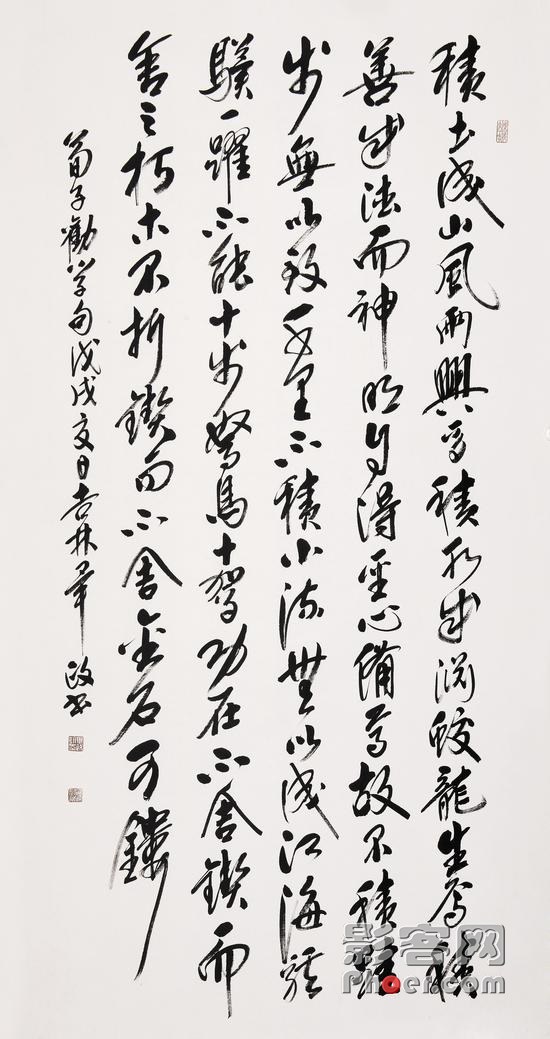 積土成山風雨興焉積水成淵蛟龍生焉積
善成德而神明自得聖心備焉故不積跬
步無以致千里不積小流無以成江海騏
驥一躍不能十步駑馬十駕功在不舍鍥而
舍之朽木不折鍥而不舍金石可鏤
荀子勸學句戊戌夏日吉林 政书
影客网
Phoer.com